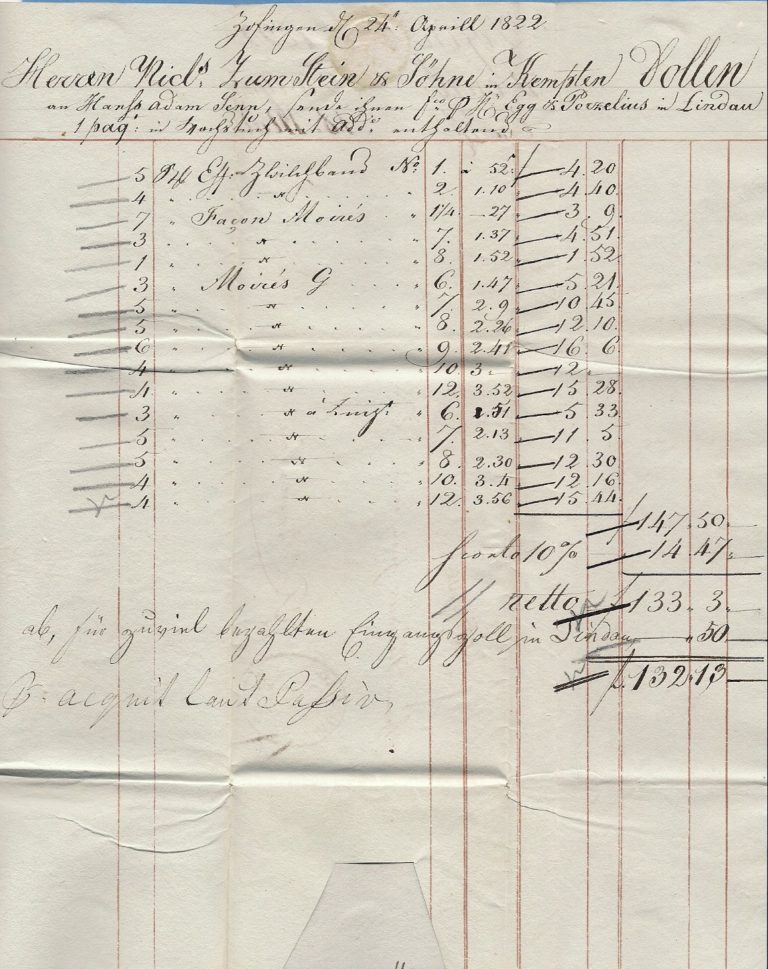 Zofingen d 24t. Aprill 1822
Herren Nicls. Zum Stein & Söhne in Kempten Sollen
an Hanss Adam Senn, sende ihnen fco p H. Egg & Porzelius in Lindau
1 paq: in Wachstuch mit Addo. enthaltend
5 Ps Eff. Zwilchband No. 1. à 52. f 4.20
4 " " " 2. 1.10 4.40.
7 " Façon Moirés " 1 1/4. 27 3.9.
3 " " " 7. 1.37 4.51.
1 " " " 8. 1.52 1.52
3 " Moirés G " 6. 1.47 5.21
5 " " " 7. 2.9 10.45
5 " " " 8. 2.26 12.10.
6 " " " 9. 2.41 16.6
4 " " " 10. 3. 12.
4 " " " 12. 3.52 15.28.
3 " " à " 6. 1.51 5.33
5 " " " 7. 2.13 11.5.
5 " " " 8. 2.30 12.30
4 " " " 10. 3.4 12.16.
4 " " " 12. 3.56 15.44.
f 147.50.
Sconto 10% 14.47.
netto f 133.3.
ab, für zuviel bezahlten Eingangszoll in Lindau " 50.
f. 132.13
p. acquit laut